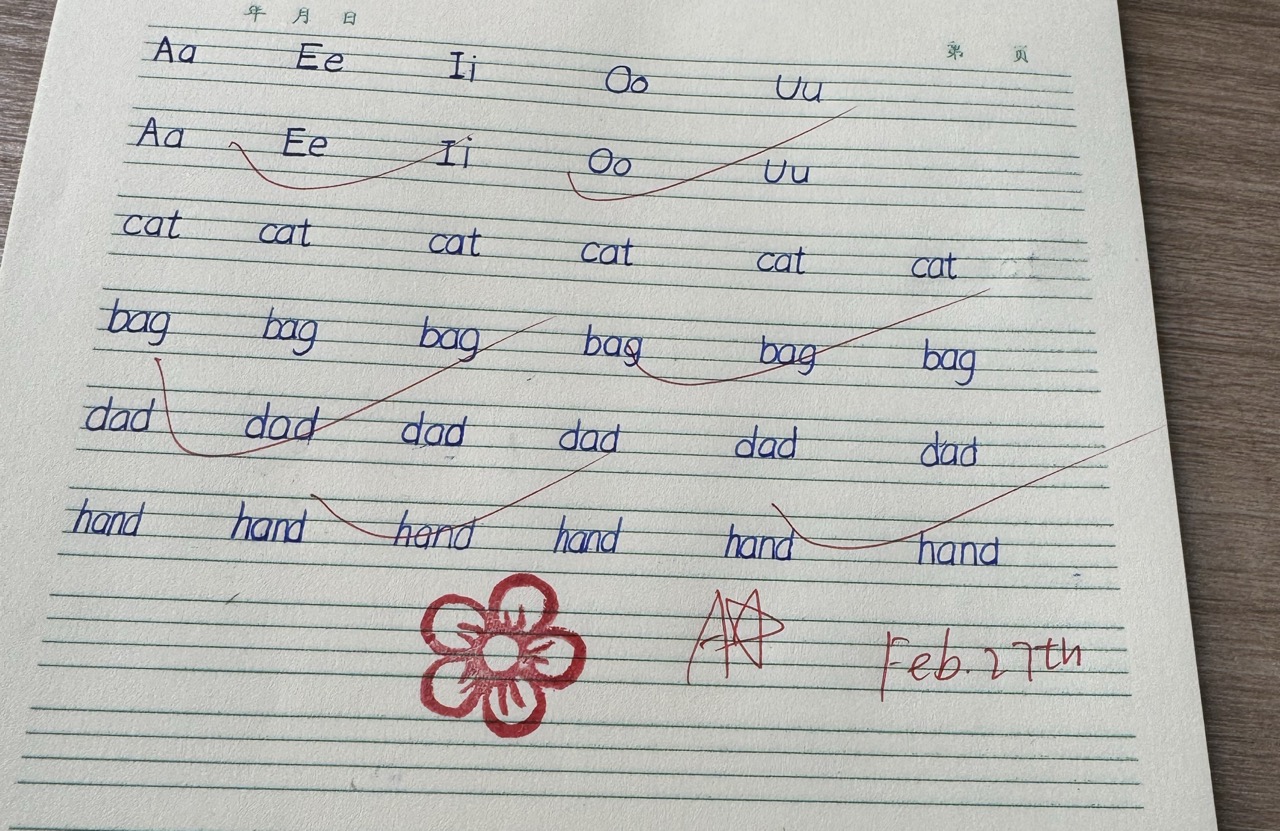 年 月 日
第 页
Aa Ee Ii Oo Uu
Aa Ee Ii Oo Uu
cat cat cat cat cat cat
bag bag bag bag bag bag
dad dad dad dad dad dad
hand hand hand hand hand hand
A☆ Feb. 27th